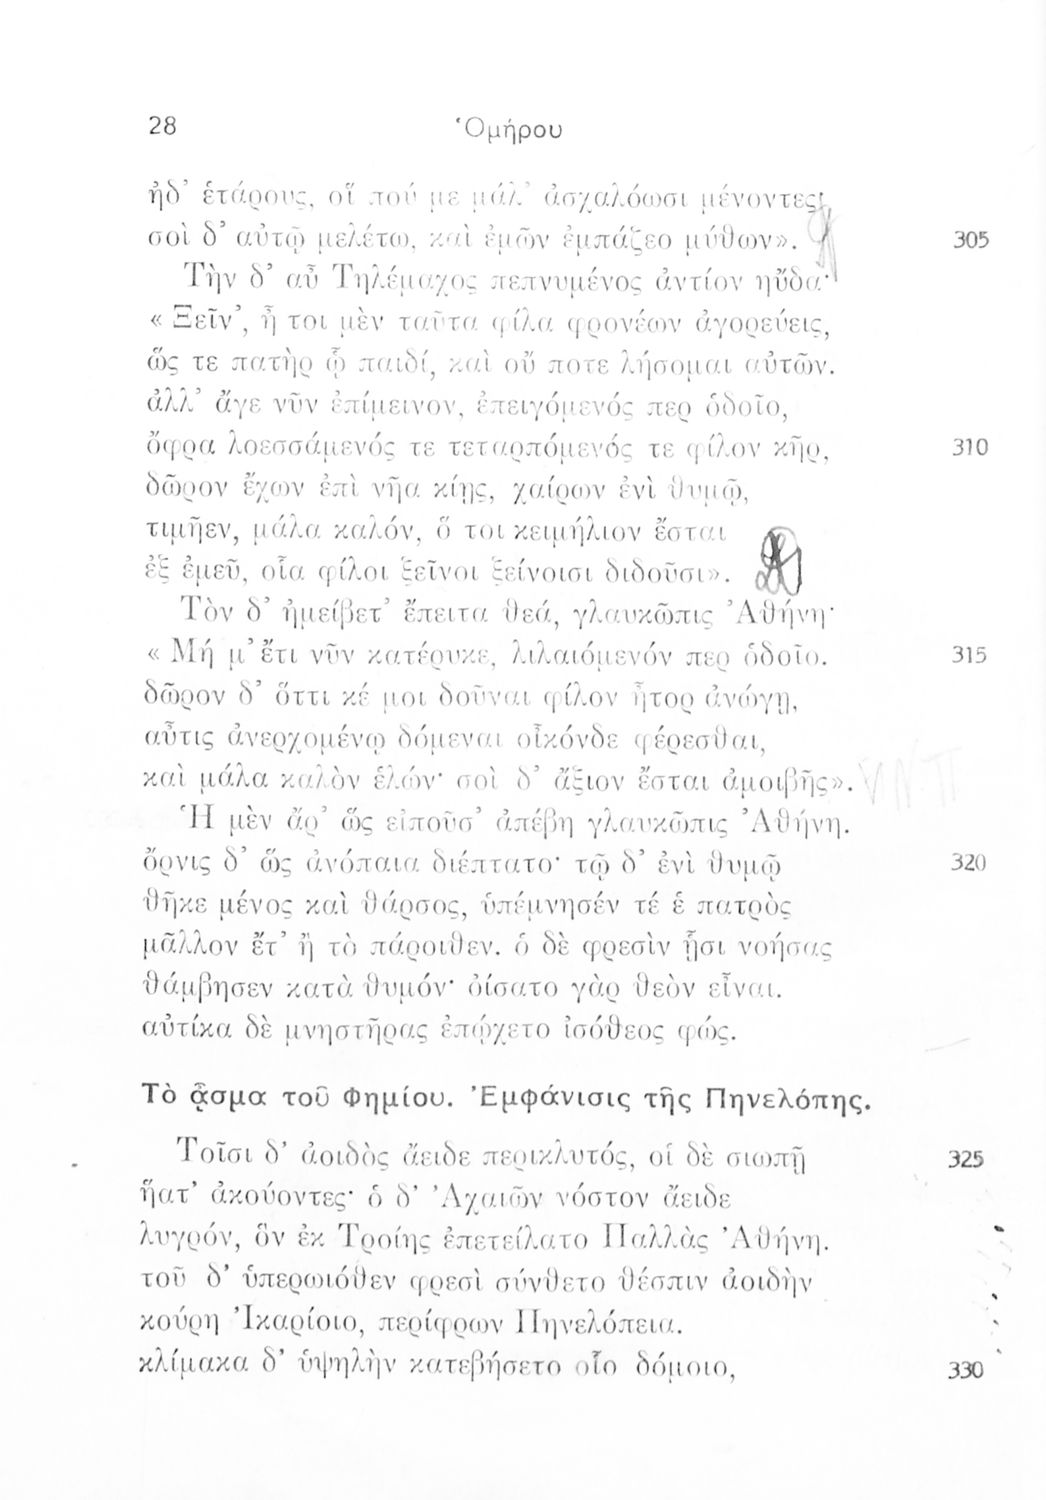 28 Ὁμήρου
ἠδ’ ἑτάρους, οἵ πού με μάλ’ ἀσχαλόωσι μένοντες·
σοὶ δ’ αὐτῷ μελέτω, καὶ ἐμῶν ἐμπάζεο μύθων». 305
Τὴν δ’ αὖ Τηλέμαχος πεπνυμένος ἀντίον ηὔδα·
« Ξεῖν’, ἦ τοι μὲν ταῦτα φίλα φρονέων ἀγορεύεις,
ὥς τε πατὴρ ᾧ παιδί, καὶ οὔ ποτε λήσομαι αὐτῶν.
ἀλλ’ ἄγε νῦν ἐπίμεινον, ἐπειγόμενός περ ὁδοῖο,
ὄφρα λοεσσάμενός τε τεταρπόμενός τε φίλον κῆρ, 310
δῶρον ἔχων ἐπὶ νῆα κίῃς, χαίρων ἐνὶ θυμῷ,
τιμῆεν, μάλα καλόν, ὅ τοι κειμήλιον ἔσται
ἐξ ἐμεῦ, οἷα φίλοι ξεῖνοι ξείνοισι διδοῦσι».
Τὸν δ’ ἠμείβετ’ ἔπειτα θεά, γλαυκῶπις Ἀθήνη·
« Μή μ’ ἔτι νῦν κατέρυκε, λιλαιόμενόν περ ὁδοῖο. 315
δῶρον δ’ ὅττι κέ μοι δοῦναι φίλον ἦτορ ἀνώγῃ,
αὖτις ἀνερχομένῳ δόμεναι οἶκόνδε φέρεσθαι,
καὶ μάλα καλὸν ἑλών· σοὶ δ’ ἄξιον ἔσται ἀμοιβῆς».
Ἡ μὲν ἄρ’ ὣς εἰποῦσ’ ἀπέβη γλαυκῶπις Ἀθήνη.
ὄρνις δ’ ὣς ἀνόπαια διέπτατο· τῷ δ’ ἐνὶ θυμῷ 320
θῆκε μένος καὶ θάρσος, ὑπέμνησέν τέ ἑ πατρὸς
μᾶλλον ἔτ’ ἢ τὸ πάροιθεν. ὁ δὲ φρεσὶν ᾗσι νοήσας
θάμβησεν κατὰ θυμόν· ὀίσατο γὰρ θεὸν εἶναι.
αὐτίκα δὲ μνηστῆρας ἐπῴχετο ἰσόθεος φώς.
Τὸ ᾆσμα τοῦ Φημίου. Ἐμφάνισις τῆς Πηνελόπης.
Τοῖσι δ’ ἀοιδὸς ἄειδε περικλυτός, οἱ δὲ σιωπῇ 325
ἥατ’ ἀκούοντες· ὁ δ’ Ἀχαιῶν νόστον ἄειδε
λυγρόν, ὃν ἐκ Τροίης ἐπετείλατο Παλλὰς Ἀθήνη.
τοῦ δ’ ὑπερωιόθεν φρεσὶ σύνθετο θέσπιν ἀοιδὴν
κούρη Ἰκαρίοιο, περίφρων Πηνελόπεια.
κλίμακα δ’ ὑψηλὴν κατεβήσετο οἷο δόμοιο, 330